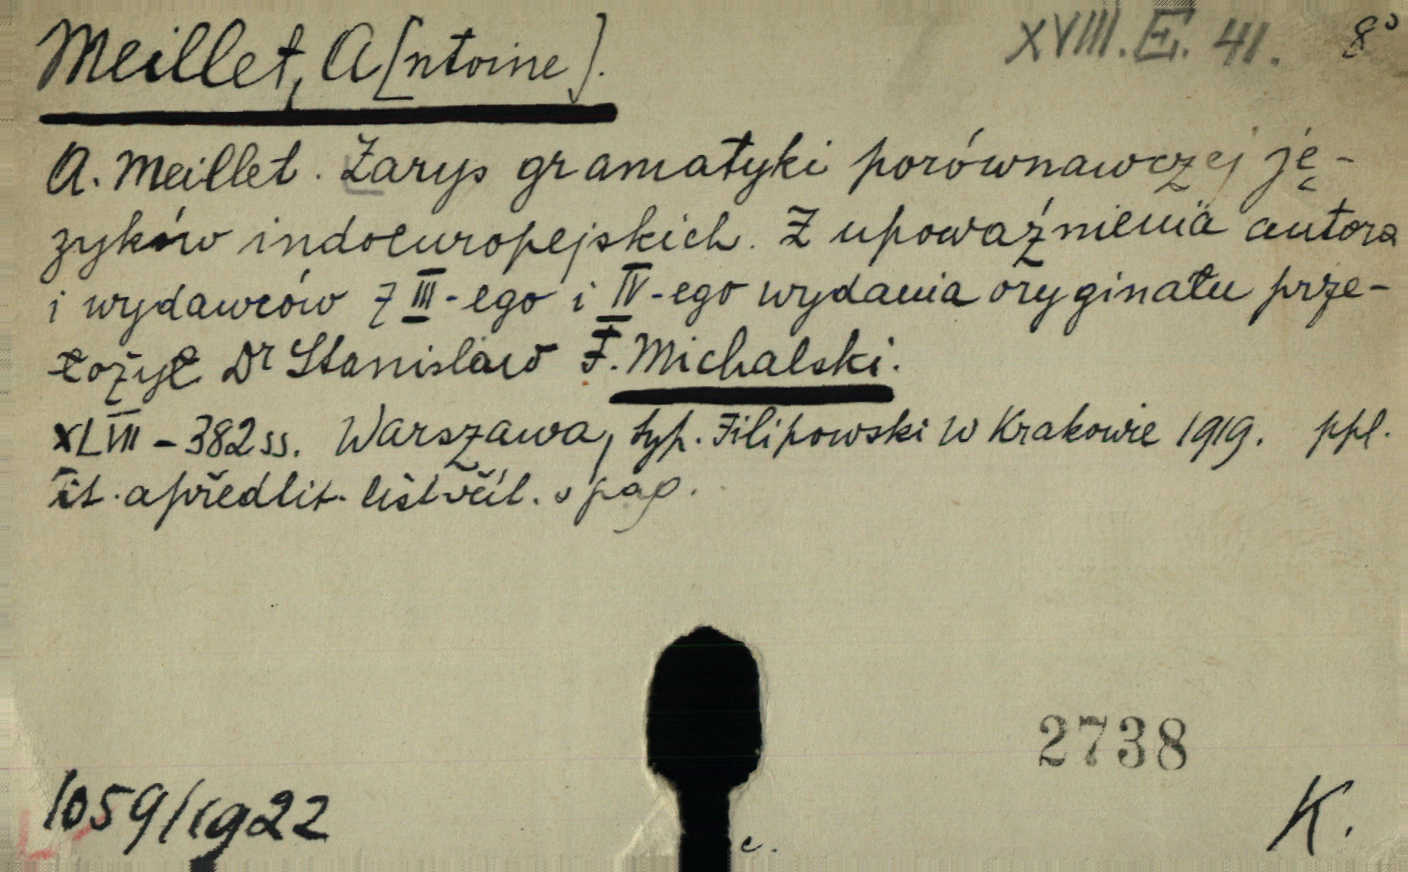 Meillet, A[ntoine].
XVIII. E. 41. 8°
A. Meillet. Zarys gramatyki porównawczej ję-
zyków indoeuropejskich. Z upoważnienia autora
i wydawców z III-ego i IV-ego wydania oryginału prze-
łożył Dr Stanisław F. Michalski.
XLVIII - 382 ss. Warszawa, typ. Filipowski w Krakowie 1919. ppl.
tit. a předlit. list včít. v pag.
2738
1059/1922
c.
K.